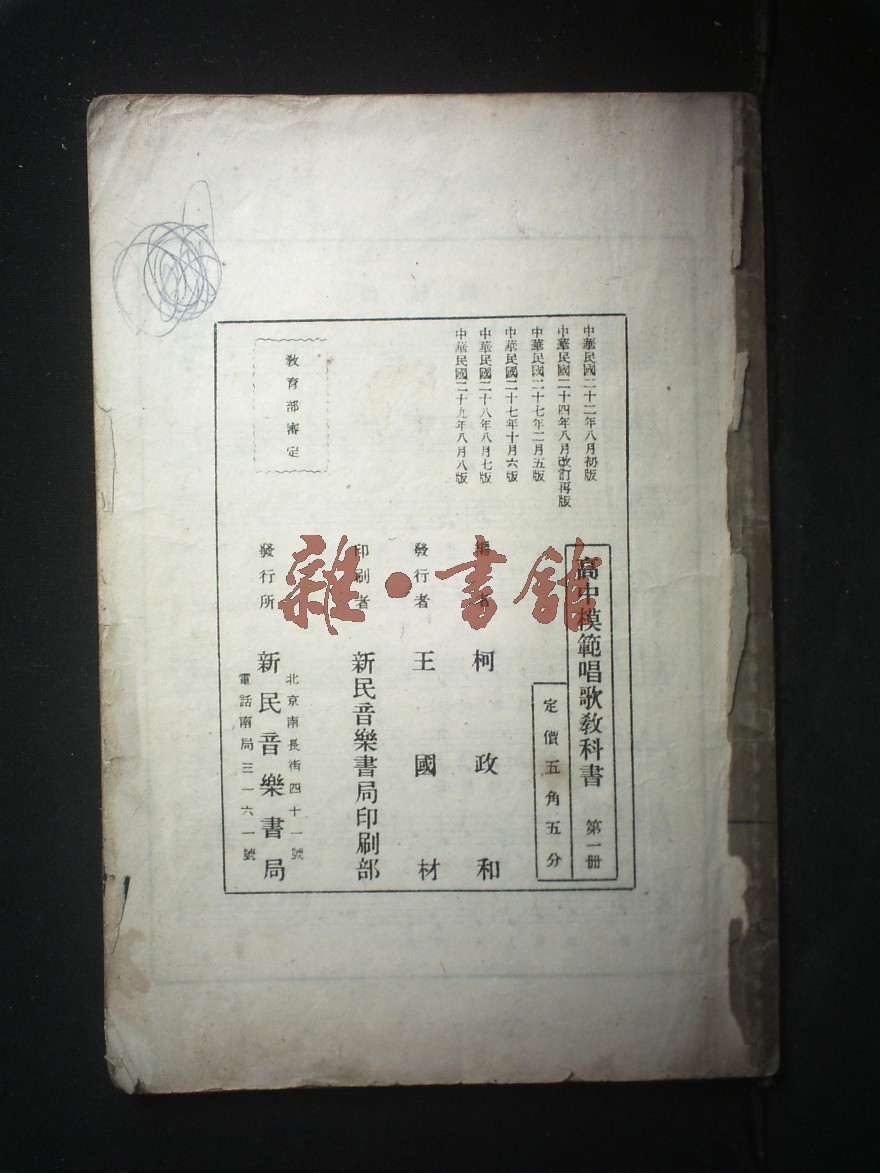 中華民國二十二年八月初版
中華民國二十四年八月改訂再版
中華民國二十七年二月五版
中華民國二十七年十月六版
中華民國二十八年八月七版
中華民國二十九年八月八版
教育部審定
高中模範唱歌教科書 第一冊
定價五角五分
編者 柯政和
發行者 王國材
印刷者 新民音樂書局印刷部
發行所 新民音樂書局
北京南長街四十一號
電話南局三一六一號
雜·書館